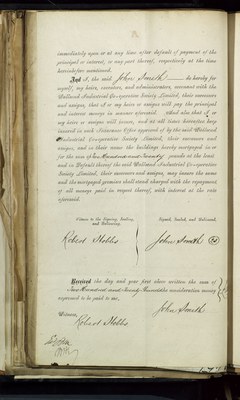 immediately upon or at any time after default of payment of the
principal or interest, or any part thereof, respectively at the time
hereinbefore mentioned.
And I, the said John Smith do hereby for
myself, my heirs, executors, and administrators, covenant with the
Industrial Co-operative Society Limited, their successors
and assigns, that I or my heirs or assigns will pay the principal
and interest moneys in manner aforesaid. And also that I or
my heirs or assigns will insure, and at all times hereafter keep
insured in such Insurance Office approved of by the said
Industrial Co-operative Society Limited, their successors and
assigns, and in their name the buildings hereby mortgaged in or
for the sum of Two Hundred and Seventy pounds at the least
and in Default thereof the said Industrial Co-operative
Society Limited, their successors and assigns, may insure the same
and the mortgaged premises shall stand charged with the repayment
of all moneys paid in respect thereof, with interest at the rate
aforesaid.
Witness to the Signing, Sealing,
and Delivering,
Signed, Sealed, and Delivered,
Robert Hobbs
John Smith
Received the day and year first above written the sum of
Two Hundred and Seventy Pounds the consideration money
expressed to be paid to me,
John Smith
Witness,
Robert Hobbs